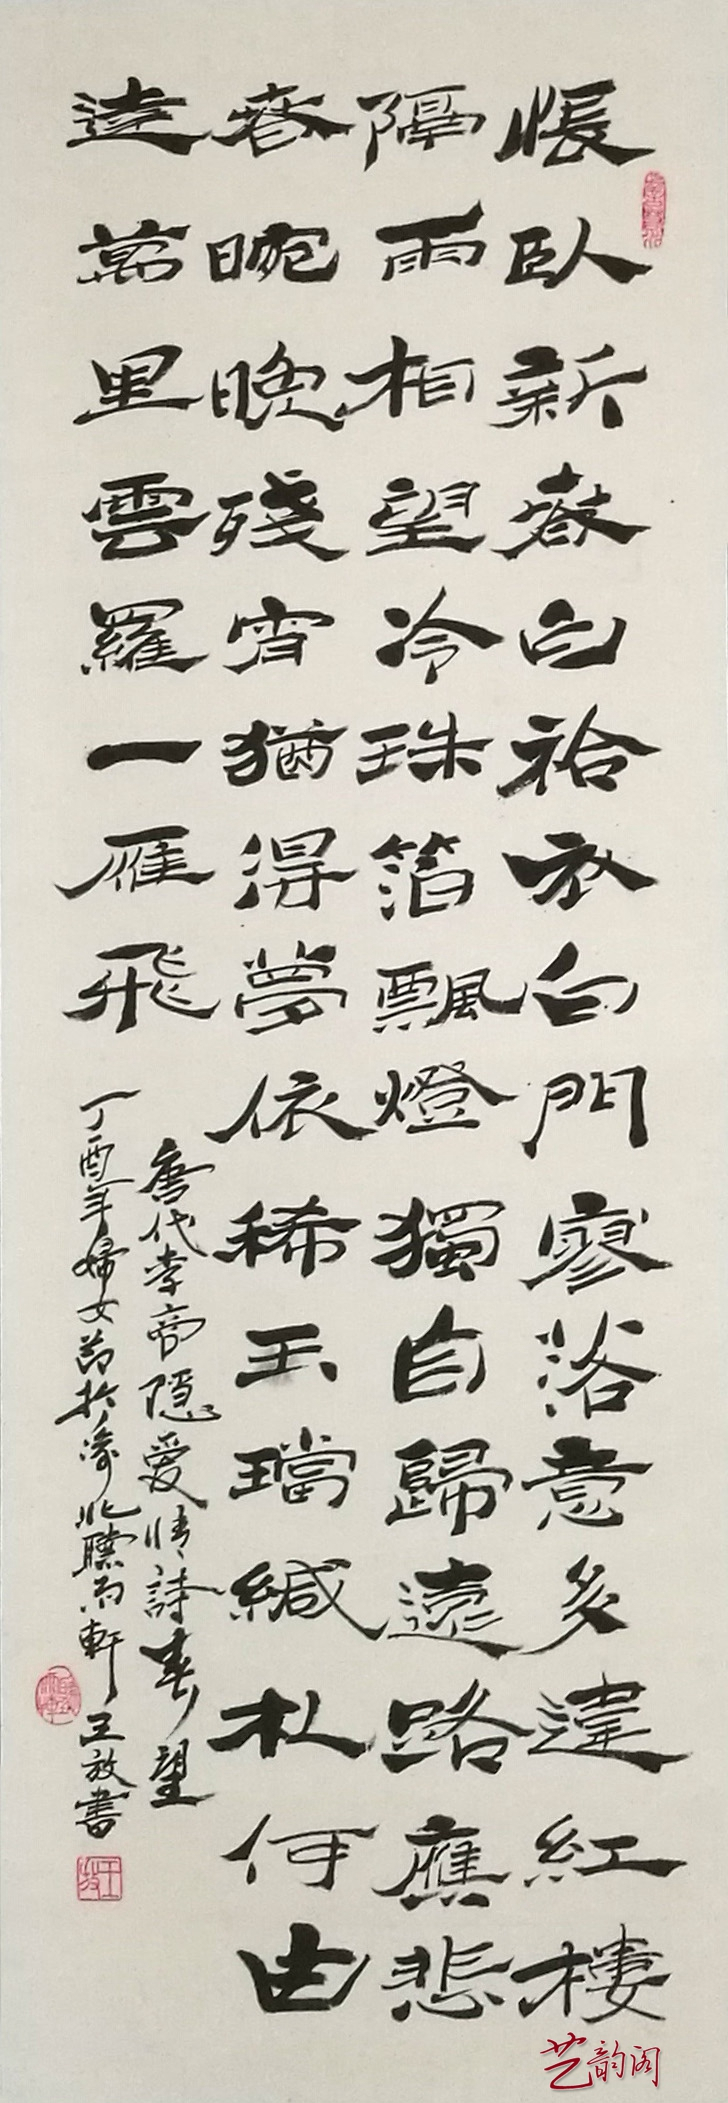 悵臥新春白袷衣白門寥落意多違紅樓
隔雨相望冷珠箔飄燈獨自歸遠路應悲
春晼晚殘宵猶得夢依稀玉璫緘札何由
達萬里雲羅一雁飛
唐代李商隐爱情詩春望
丁酉年婦女節於北聽雨軒王放書
王放
艺韵阁